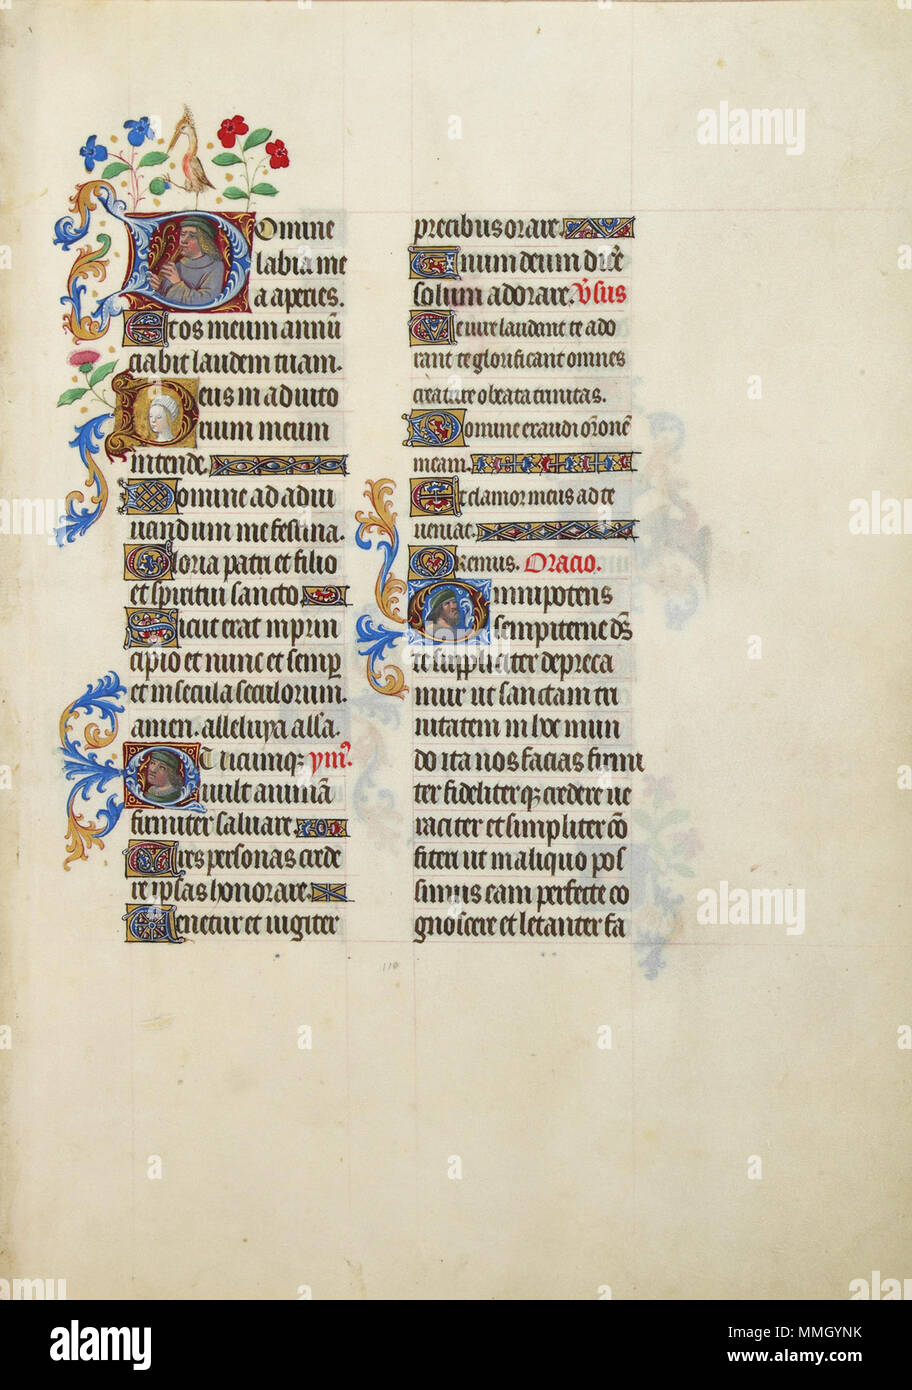 Domine
labia me
a aperies.
Et os meum annū
ciabit laudem tuam.
Deus in adiuto
rium meum
intende.
Domine ad adiu
uandum me festina.
Gloria patri et filio
et spiritui sancto.
Sicut erat in prin
cipio et nunc et semp
et in secula seculorum.
amen. alleluya alla.
Quicumq ymꝰ.
uult animā
firmiter saluare.
Tres personas crede
re ipsas honorare.
Venetur et iugiter
precibus orare.
Et unum deum dicere
solum adorare. Vsus
Te iure laudent te ado
rant te glorificant omnes
creature o beata trinitas.
Domine exaudi orōnē
meam.
Et clamor meus ad te
ueniat.
Oremus. Oracio.
Omnipotens
sempiterne ds
te suppliciter depreca
mur ut sanctam tri
nitatem in hoc mun
do ita nos facias firmi
ter fideliterq credere ue
raciter et simpliter cō
fiteri ut in aliquo pos
simus eam perfecte co
gnoscere et letanter fa
110
alamy
MMGYNK
www.alamy.com